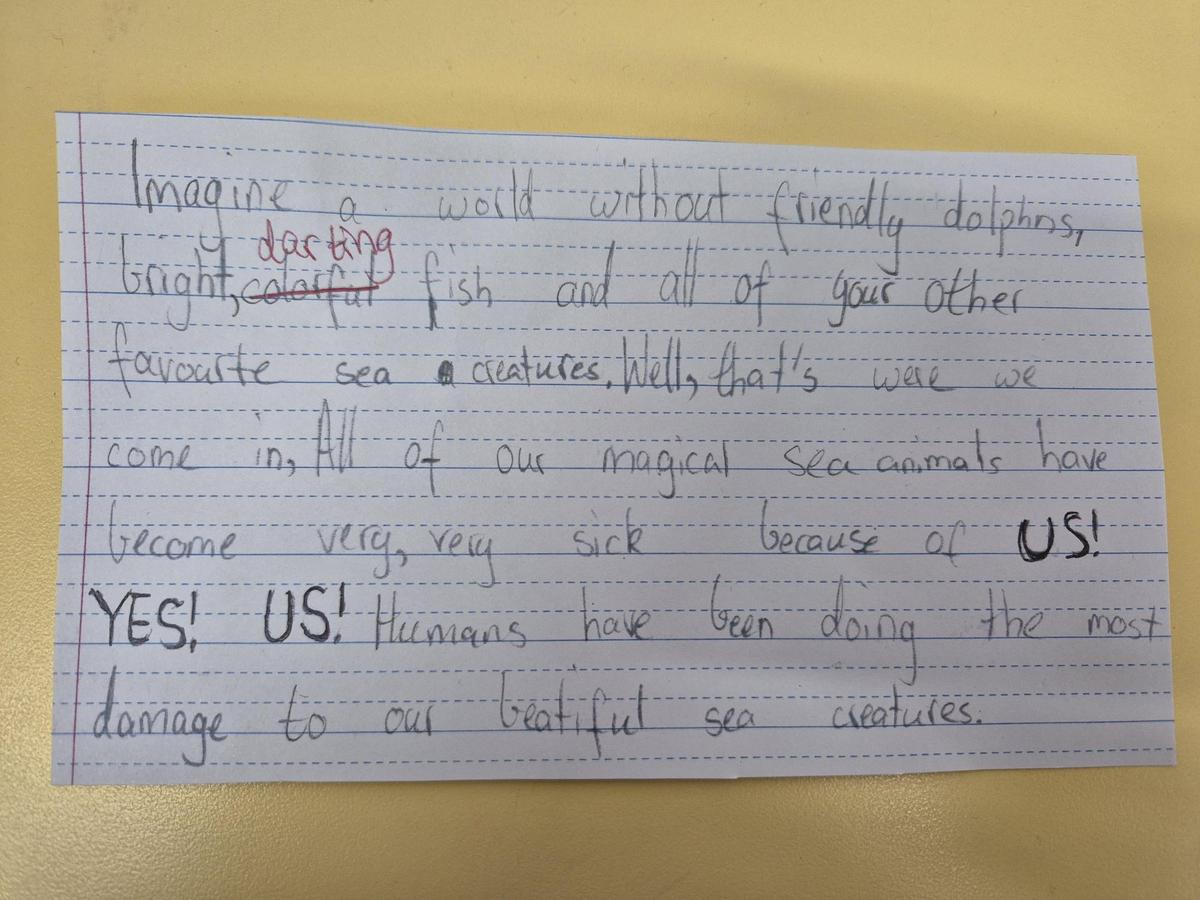 Imagine a world without friendly dolphins,
bright, darting colorful fish and all of your other
favourite sea creatures. Well, that's were we
come in, All of our magical sea animals have
become very, very sick because of US!
YES! US! Humans have been doing the most
damage to our beatiful sea creatures.